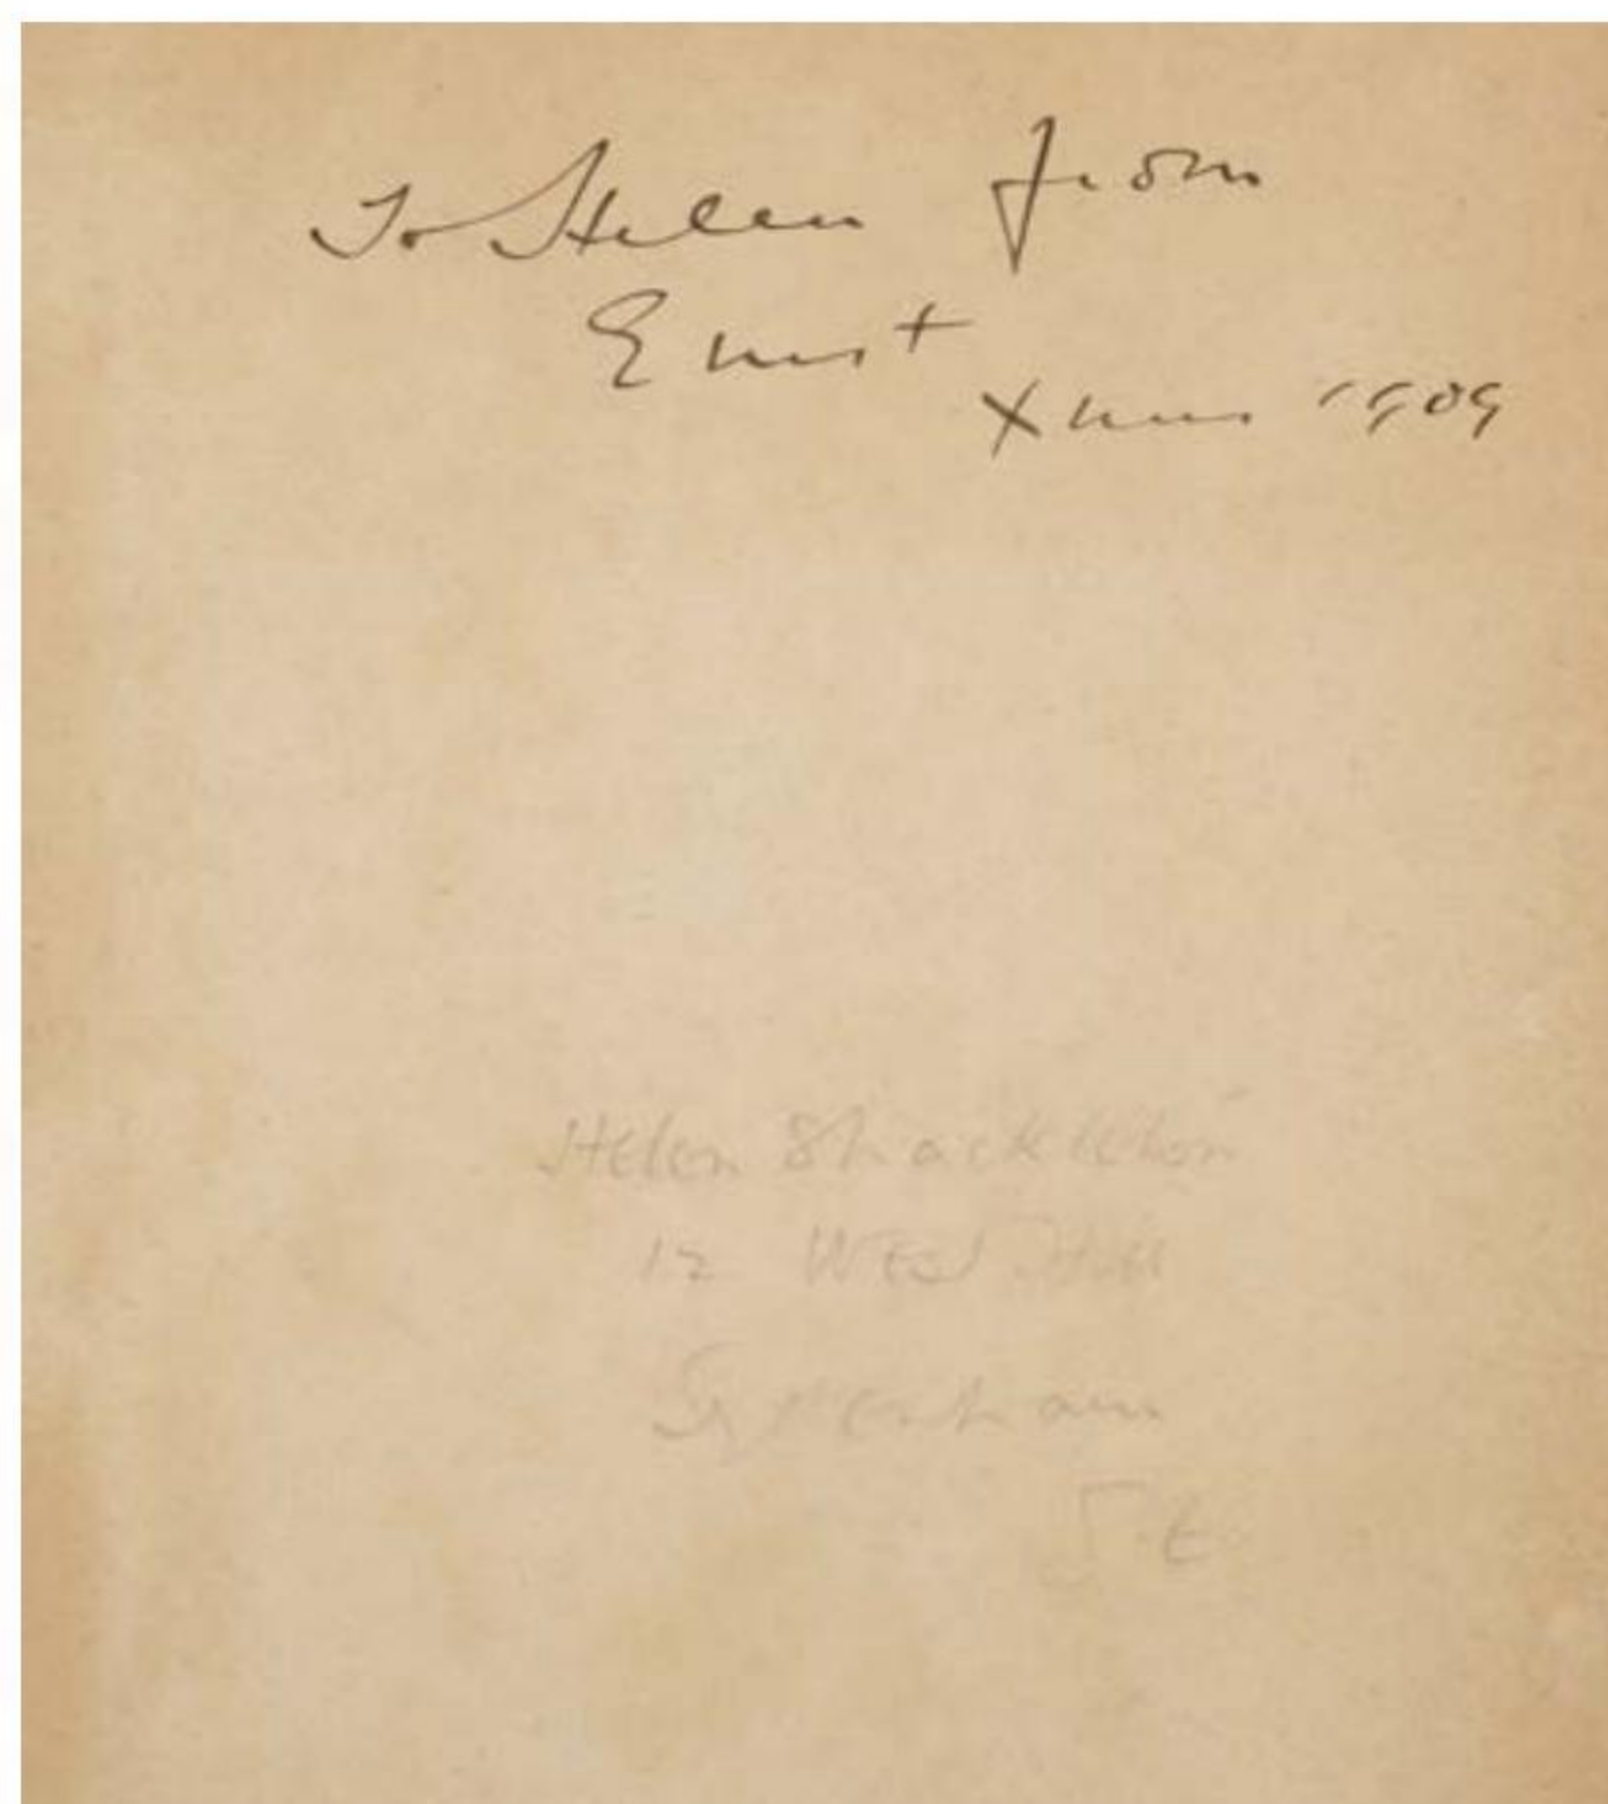 To Helen from
Ernest
Xmas 1909
Helen Shackleton
12 West Hill
Sydenham
S.E.